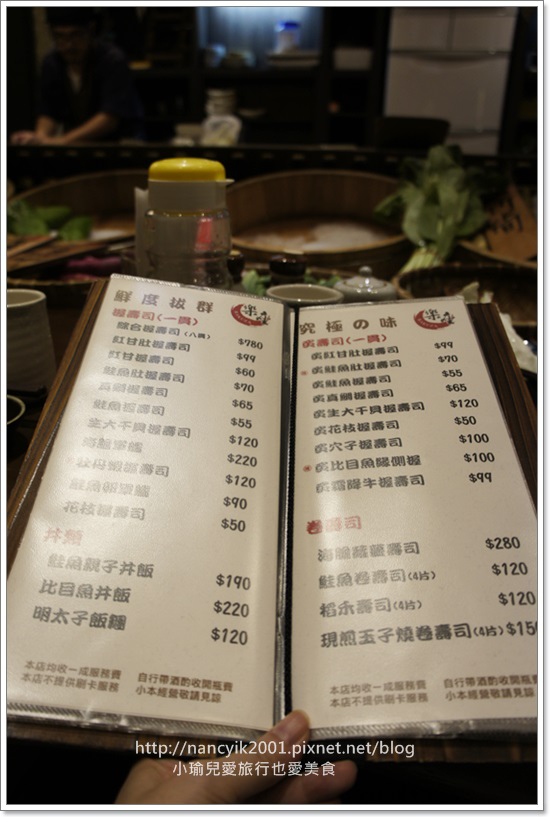 鮮度拔群
握壽司(一貫)
綜合握壽司(八貫) $780
紅甘肚握壽司 $99
紅甘握壽司 $60
鮭魚肚握壽司 $70
真鯛握壽司 $65
鮭魚握壽司 $55
生大干貝握壽司 $120
海膽軍艦 $220
牡丹蝦握壽司 $120
鮭魚卵軍艦 $90
花枝握壽司 $50
丼類
鮭魚親子丼飯 $190
比目魚丼飯 $220
明太子飯糰 $120
本店均收一成服務費 自行帶酒酌收開瓶費
本店不提供刷卡服務 小本經營敬請見諒
究極の味
炙壽司(一貫)
炙紅甘肚握壽司 $99
炙鮭魚肚握壽司 $70
炙鮭魚握壽司 $55
炙真鯛握壽司 $65
炙生大干貝握壽司 $120
炙花枝握壽司 $50
炙穴子握壽司 $100
炙比目魚鰭側握 $100
炙霜降牛握壽司 $99
卷壽司
海膽蘿蔔壽司 $280
鮭魚卷壽司(4片) $120
稻禾壽司(4片) $120
現煎玉子燒卷壽司(4片) $150
本店均收一成服務費 自行帶酒酌收開瓶費
本店不提供刷卡服務 小本經營敬請見諒
http://nancyik2001.pixnet.net/blog
小瑜兒愛旅行也愛美食